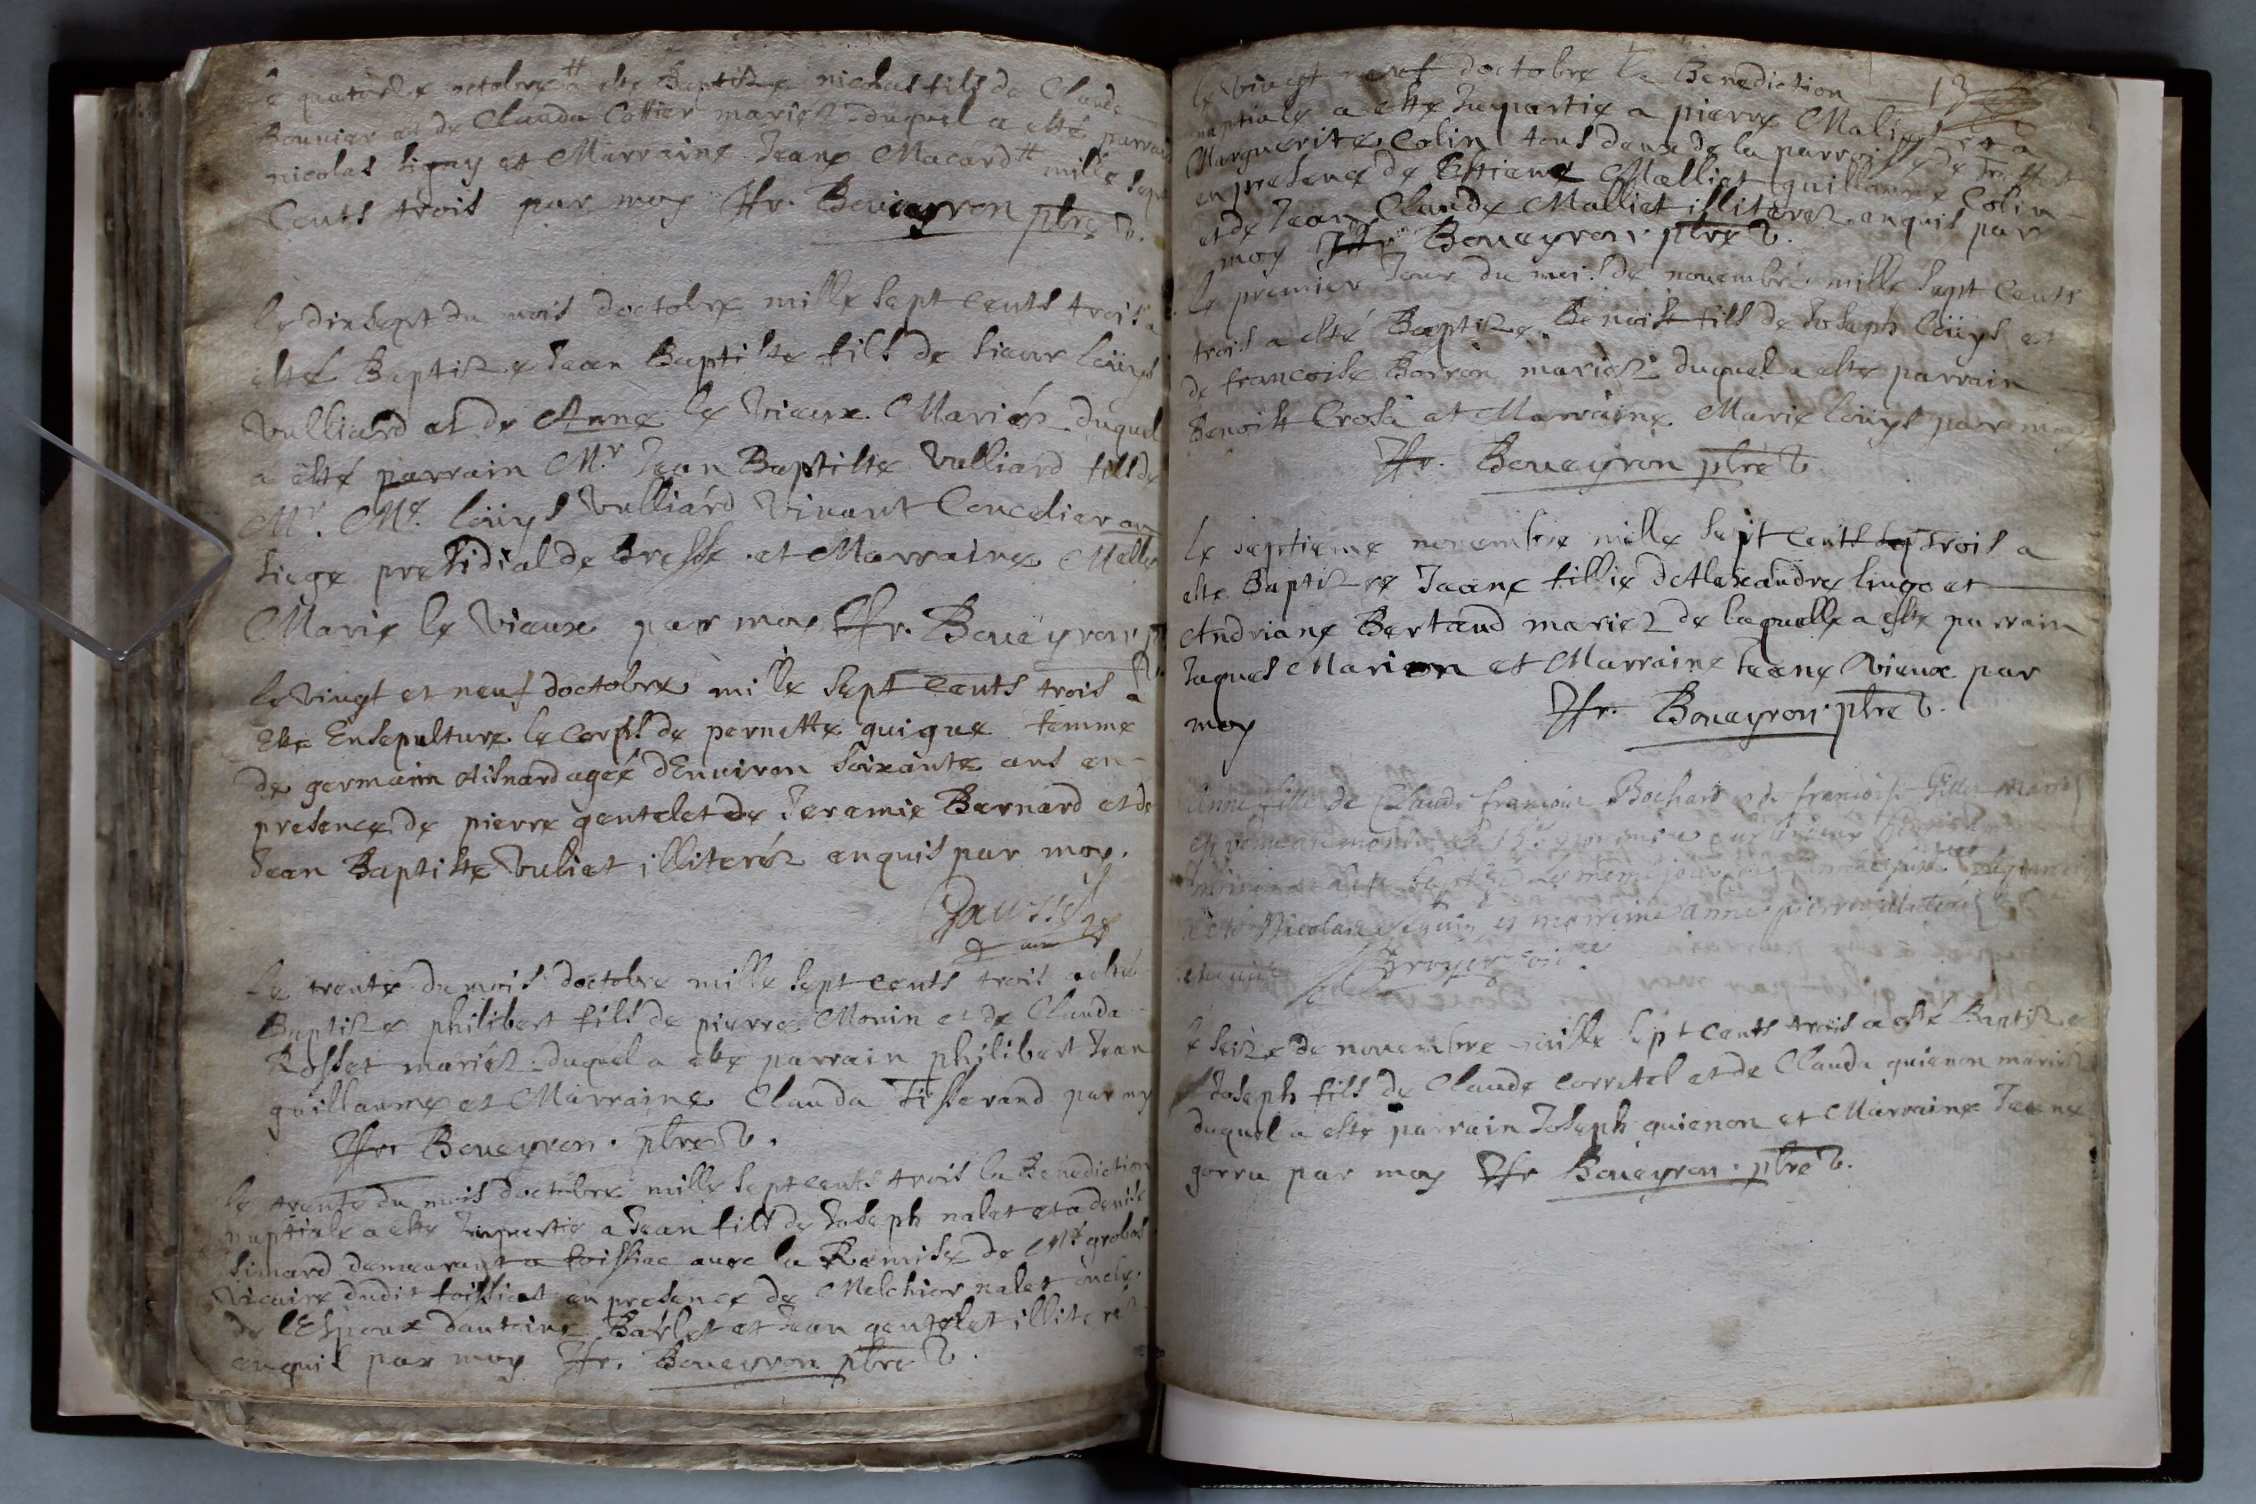 le quatorze octobre a esté Baptize nicolas fils de Claude
Bouvier et de Clauda Cottier mariez duquel a esté parrain
nicolas ligny et Marraine Jeane Macard mille sept
Cents trois par moy ffr. Boueyron ptre v.
le dixsept du mois doctobre mille sept cents trois a
esté Baptize Jean Baptiste fils de sieur loüys
Vulliard et de Anne le Vieux Mariéz duquel
a esté parrain Mr Jean Baptiste Vulliard fils de
Mr. Me. loüys Vulliard Vivant Concelier au
siege presidial de Bresse et Marraine Melle
Marie le Vieux par moy ffr. Boueyron p
le Vingt et neuf doctobre mille sept cents trois a
Este Ensepulture le corps de pernette guigue femme
de germain Tisnard ageé dEnviron soixante ans en
presence de pierre gentelet de Jeremie Bernard et de
Jean Baptiste Vuliet illiteréz enquis par moy.
le trente du mois doctobre mille sept cents trois a esté
Baptize philibert fils de pierre Monin et de Clauda
Rosset mariéz duquel a este parrain philibert Jean
guillaume et Marraine Clauda Tisserand par my
ffr. Boueyron. ptre v.
le trente du mois doctobre mille sept cents trois la Benediction
nuptiale a este Impartie a Jean fils de Joseph nalet et a denise
simard demeurant a foissiac avec la Remise de Mr grobos
Vicaire dudit foissiat en presence de Melchior nalet oncle
de lEspoux dantoine Barlet et Jean gentelet illiterez
enquis par moy ffr. Boueyron ptre v.
13
le Vingt neuf doctobre la Benediction
nuptiale a esté Impartie a pierre Maliet et a
Marguerite Colin tous deux de la parroisse de
en presence de Estiene Malliet guillaume Colin
et de Jean Claude Malliet illiterez enquis par
moy ffr Boueyron ptre v.
le premier Jour du mois de novembre mille sept cents
trois a esté Baptize Benoist fils de Joseph loüys et
de francoise Borron mariez duquel a este parrain
Benoist Crosa et Marraine Marie loüys par moy
ffr. Boueyron ptre v.
le septieme novembre mille sept cents trois a
este Baptizee Jeane fillie dAlexandre lingo et
Andriane Bertaud mariez de laquelle a este parrain
Jaques Marion et Marraine Jeane Vieux par
moy ffr. Boueyron ptre v.
Anne fille de Claude françois Bochard et de françoise Gillet mariés
Nicolas Seguin et marreine Anne pierre illiterés
le seize de novembre mille sept cents trois a esté Baptize
Joseph fils de Claude Corretel et de Clauda guienon mariéz
duquel a esté parrain Joseph guienon et Marraine Jeane
gorra par moy ffr Boueyron. ptre v.